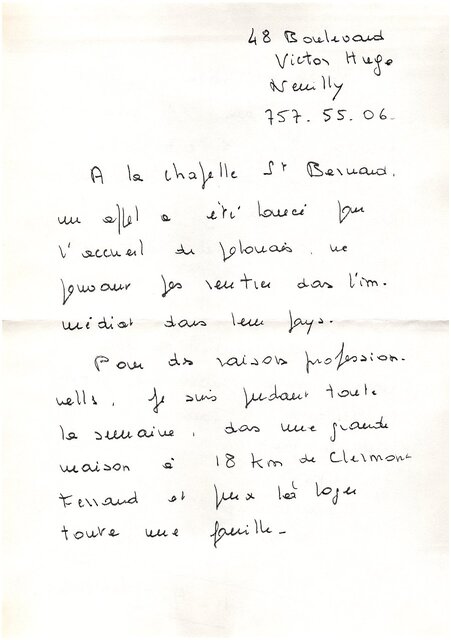 48 Boulevard
Victor Hugo
Neuilly
757.55.06.
A la chapelle St Bernard,
un appel a été lancé pour
l'accueil de polonais, ne
pouvant pas rentrer dans l'im-
médiat dans leur pays.
Pour des raisons profession-
nelles, je suis pendant toute
la semaine, dans une grande
maison à 18 km de Clermont
Ferrand et peux là loger
toute une famille_